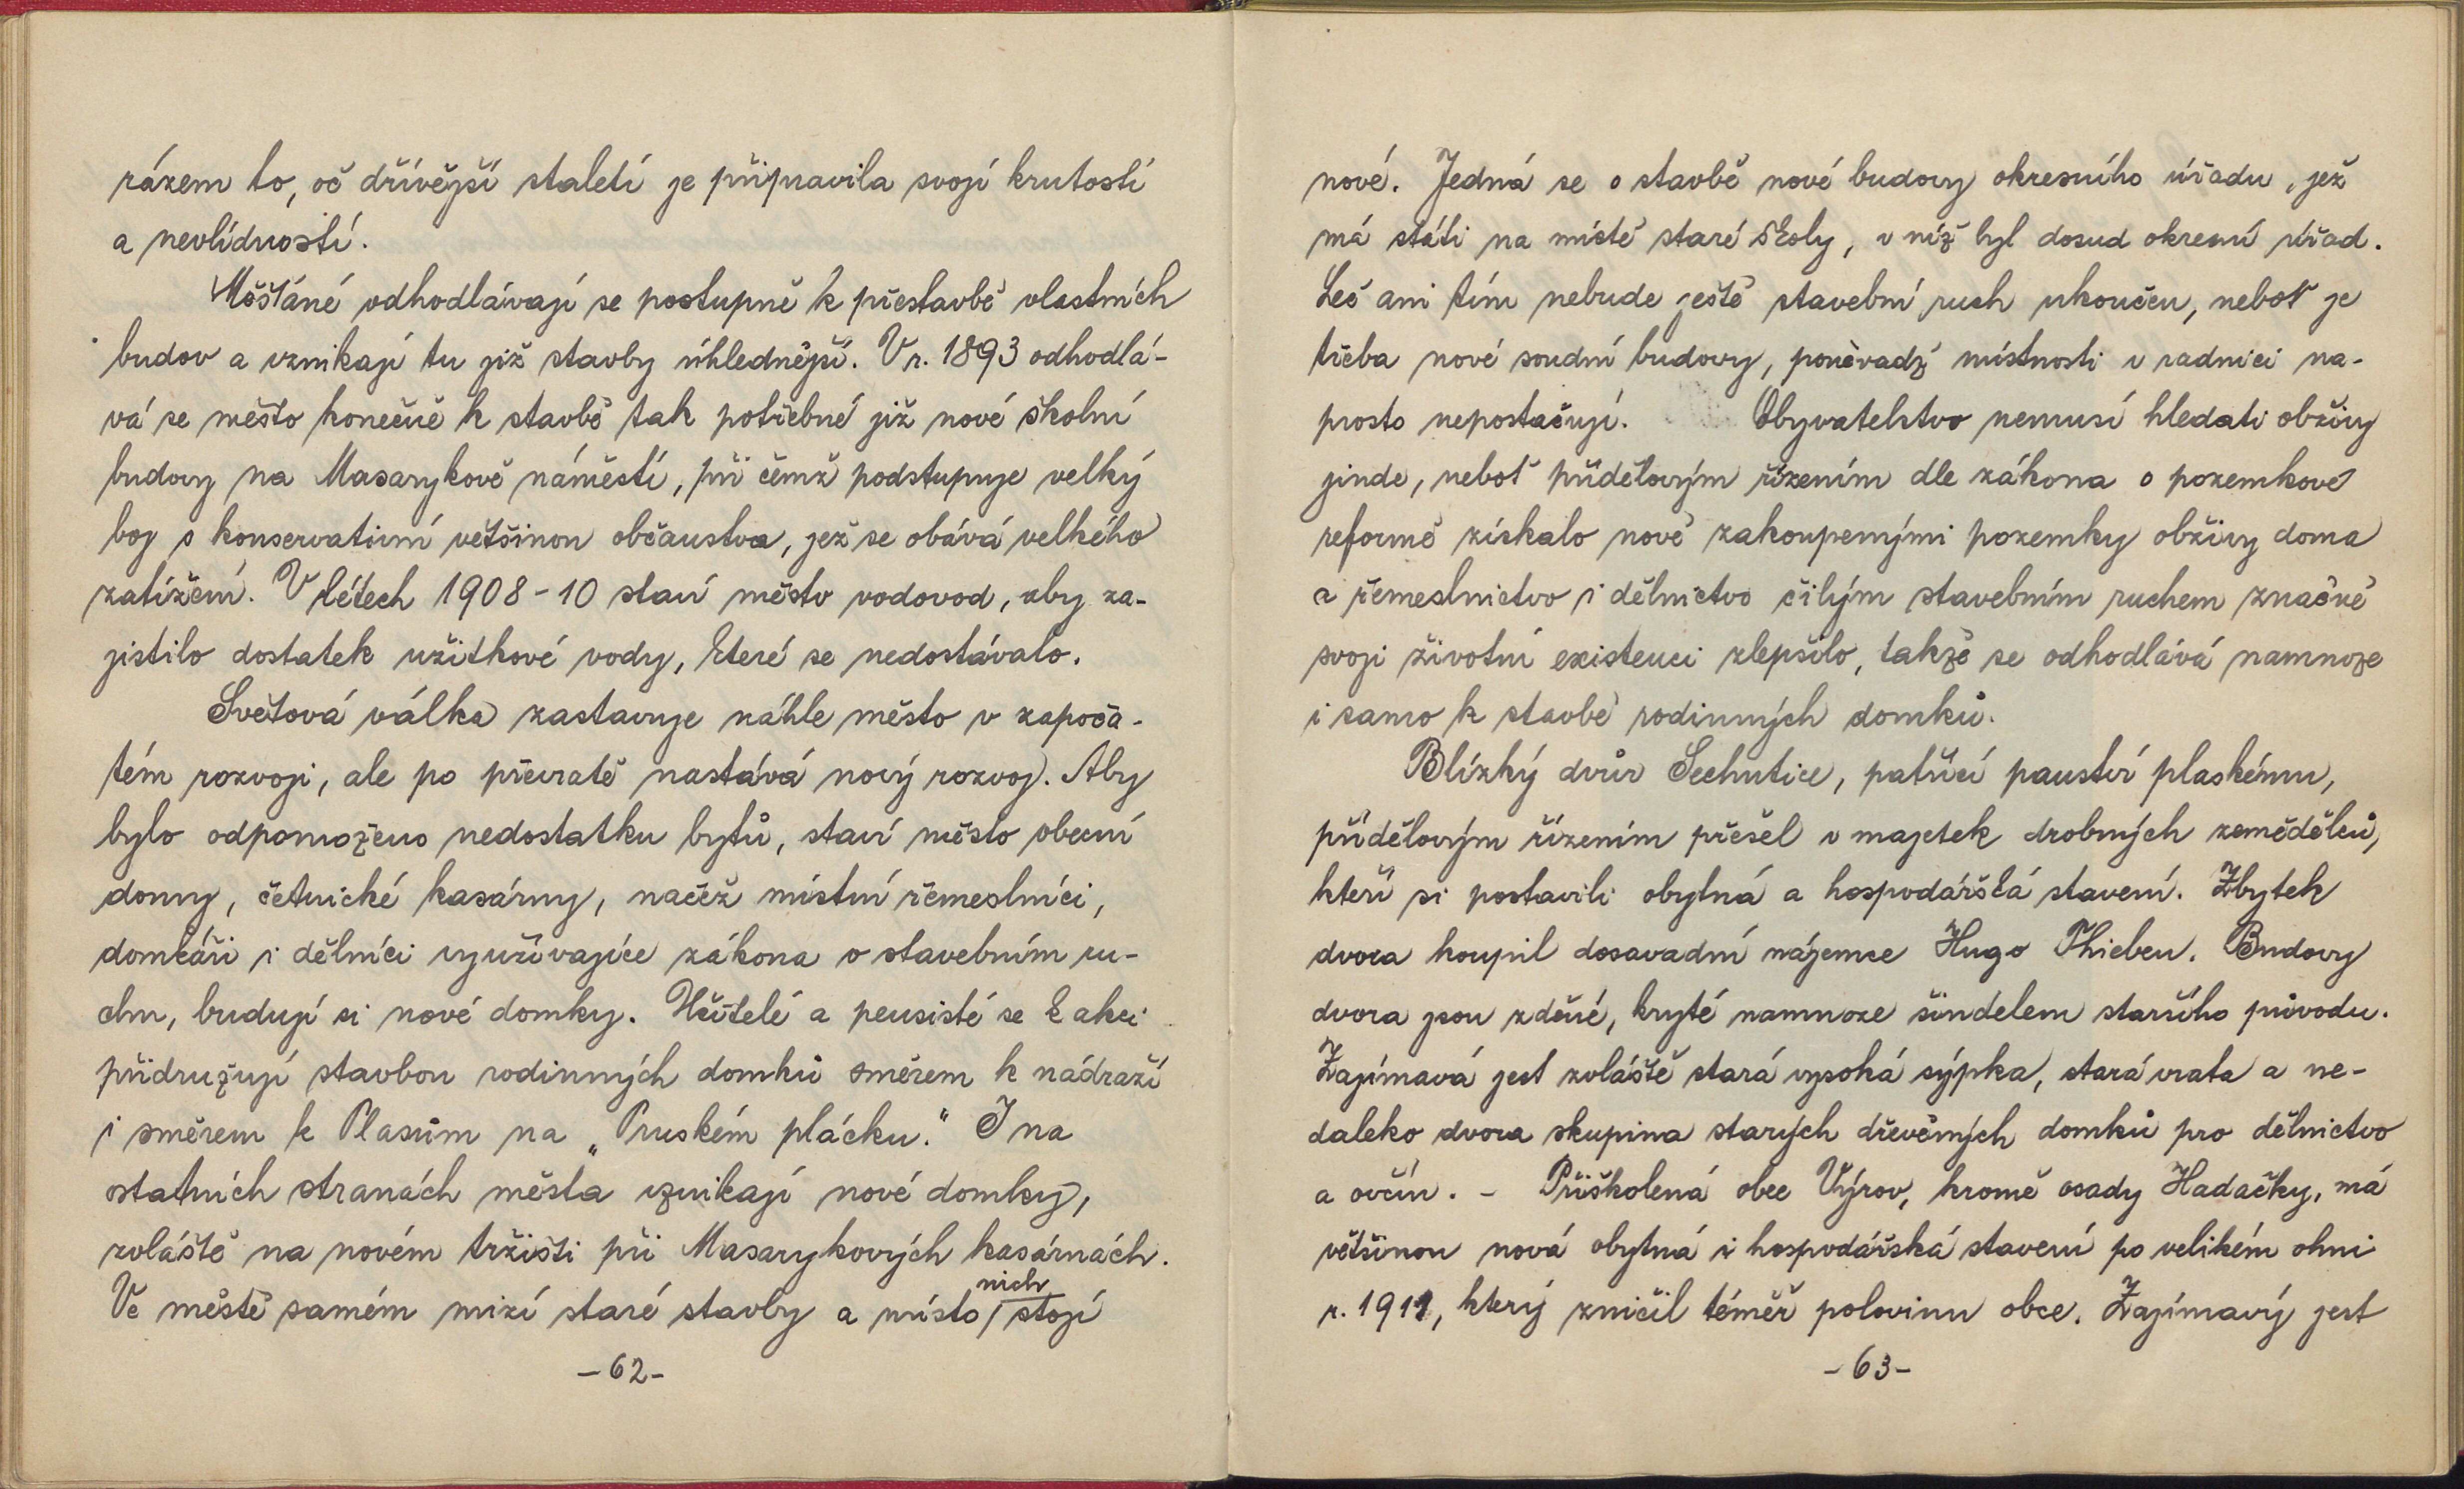 rázem to, oč dřívější staletí je připravila svojí krutostí
a nevlídností.
Měšťáné odhodlávají se postupně k přestavbě vlastních
budov a vznikají tu již stavby úhlednější. V r. 1893 odhodlá-
vá se město konečně k stavbě tak potřebné již nové školní
budovy na Masarykově náměstí, při čemž podstupuje velký
boj s konservativní většinou občanstva, jež se obává velkého
zatížení. V létech 1908-10 staví město vodovod, aby za-
jistilo dostatek užitkové vody, které se nedostávalo.
Světová válka zastavuje náhle město v započa-
tém rozvoji, ale po převratě nastává nový rozvoj. Aby
bylo odpomoženo nedostatku bytů, staví město obecní
domy, četnické kasárny, načěž místní řemeslníci,
domkáři i dělníci využívajíce zákona o stavebním ru-
chu, budují si nové domky. Učitelé a pensisté se k akci
přidružují stavbou rodinných domků směrem k nádraží
i směrem k Plasům na „Pruském plácku." I na
ostatních stranách města vznikají nové domky,
zvláště na novém tržišti při Masarykových kasárnách.
Ve městě samém mizí staré stavby a místo nich stojí
-62-
nové. Jedná se o stavbě nové budovy okresního úřadu, jež
má státi na místě staré školy, v níž byl dosud okresní úřad.
Leč ani tím nebude ještě stavební ruch ukončen, neboť je
třeba nové soudní budovy, poněvadž místnosti v radnici na-
prosto nepostačují. Obyvatelstvo nemusí hledati obživy
jinde, neboť přídělovým řízením dle zákona o pozemkové
reformě získalo nově zakoupenými pozemky obživy doma
a řemeslnictvo i dělnictvo čilým stavebním ruchem značně
svoji životní existenci zlepšilo, takže se odhodlává namnoze
i samo k stavbě rodinných domků.
Blízký dvůr Sechutice, patřící panství plaskému,
přídělovým řízením přešel v majetek drobných zemědělců,
kteří si postavili obytná a hospodářská stavení. Zbytek
dvora koupil dosavadní nájemce Hugo Thieben. Budovy
dvora jsou zděné, kryté namnoze šindelem staršího původu.
Zajímavá jest zvláště stará vysoká sýpka, stará vrata a ne-
daleko dvora skupina starých dřevěných domků pro dělnictvo
a ovčín. - Přiškolená obec Výrov, kromě osady Hadačky, má
většinou nová obytná i hospodářská stavení po velikém ohni
r. 1911, který zničil téměř polovinu obce. Zajímavý jest
-63-